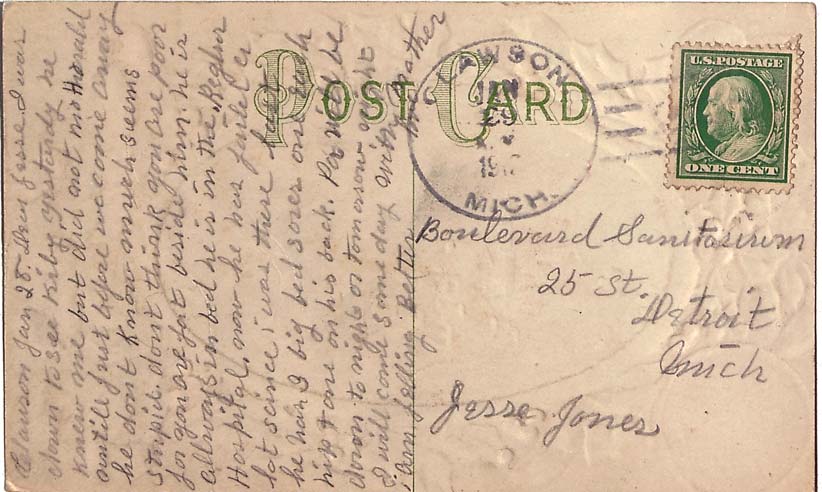 Clawson Jan 28. Dear Jesse I was
down to see Kirby yestardy he
knew me but did not mother and
untile just before we come away
he dont know much seems
stupid. dont think you are poor
for you are fat beside him. he is
allways in bed he is in the
Hospital now he has failed
lot scince i was there last
he has 2 big bed sores one each
hip & one on his back. Pa will be
down to night or tomorrow night
I will come some day with
i am felling Better
Mother
POST CARD
CLAWSON
JAN
29
MICH.
U.S. POSTAGE
ONE CENT
Boulevard Sanitarium
25 St.
Detroit
Mich
Jesse Jones